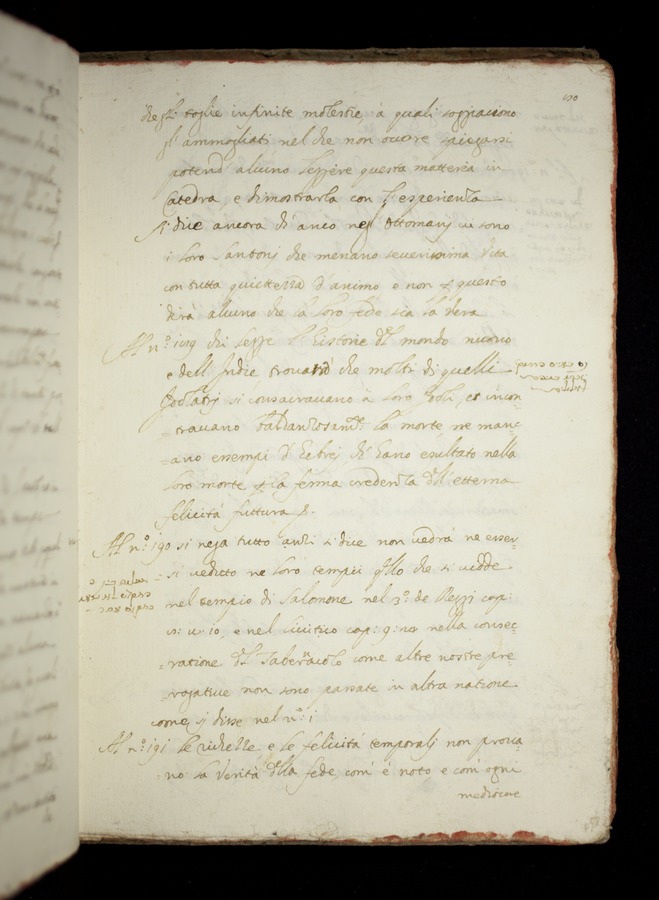 che gli toglie infinite molestie à quali soggiaciono
gl'ammogliati nel che non occore spiegarsi
potend' alcuno leggere questa matteria in
Catedra, e dimostrarla con l'esperienza
si dice ancora ch'anco negl' Ottomanj vi sono
i loro Santonj che menano severissima vita
con tutta quiettezza d'animo e non p questo
dirà alcuno che la loro fede sia la vera
Al n.º 189 chi legge l'historie del mondo nuovo
e dell'Indie trovarà che molti di quelli
Idolatrj si consacravano à loro Idoli, et incon
=travano baldanzosam.te la morte, ne man=
=cano essempi d'Ebrei, ch'hano esultato nella
loro morte p la ferma credenza dell'etterna
felicità futtura
Al n.º 190 si nega tutto anzi si dice non vedrà ne esser
si veduto ne loro tempii qllo che si vedde
nel tempio di Salomone nel 3.º de Reggi cap:
8: v: 10, e nel Livitico cap: 9: nella consec=
=ratione del Tabernacolo come altre nostre pre
=rogative non sono passate in altra natione
come si disse nel n.º 1
Al n.º 191 le richezze e le felicità temporalj non prova
no la verità della fede, com' è noto e com' ogni
mediocre